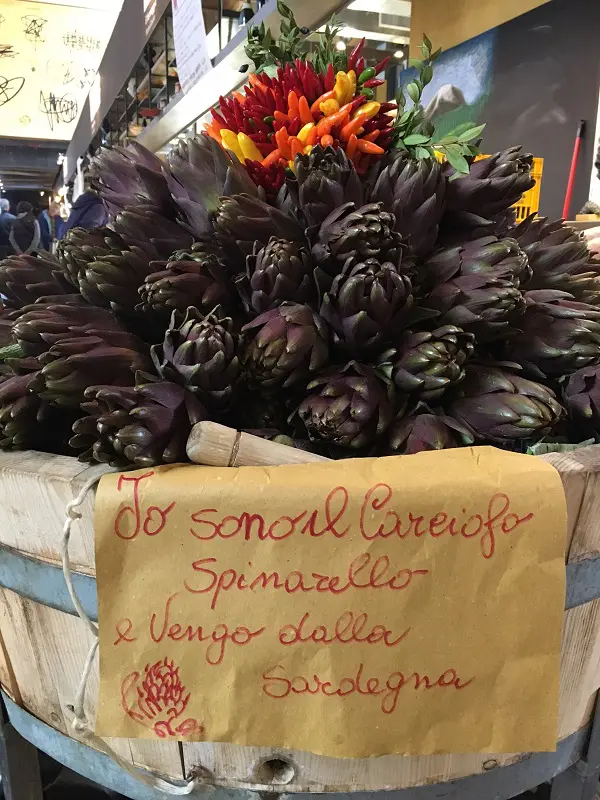 Io sono il Carciofo
Spinarello
e Vengo dalla
Sardegna